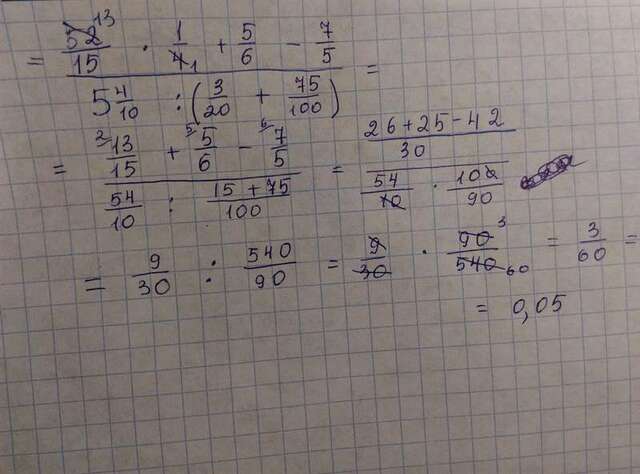 = 52 13/15 · 1/4 1 + 5/6 − 7/5
5 4/10 : (3/20 + 75/100) =
= 2 13/15 + 5 5/6 − 6 7/5 / 54/10 : 15 + 75/100 = 26 + 25 − 42/30 / 54/10 · 100/90
= 9/30 : 540/90 = 9/30 · 90 3/540 60 = 3/60 =
= 0,05